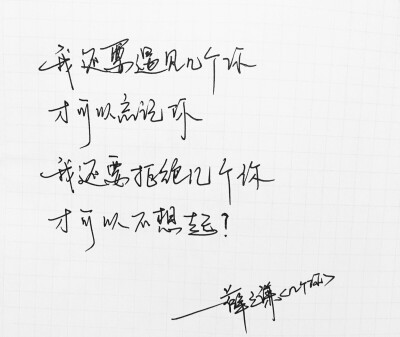 我还要遇见几个你
才可以忘记你
我还要拒绝几个你
才可以不想起?
——薛之谦<几个你>